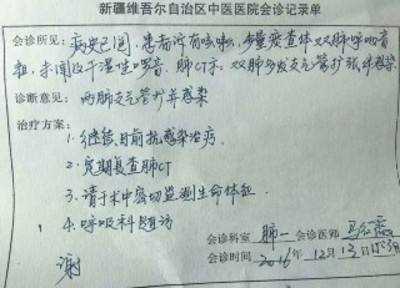 新疆维吾尔自治区中医医院会诊记录单
会诊所见：病史已闻，患者诉有咳嗽，少量痰查体双肺呼吸音
粗，未闻及干湿性啰音。肺CT示：双肺多发支气管扩张伴感染
诊断意见：两肺支气管扩并感染
治疗方案：1.继续目前抗感染治疗
2.定期复查肺CT
3.请于术中密切监测生命体征
4.呼吸科随访
谢
会诊科室 肺一 会诊医师
会诊时间 2016年12月13日